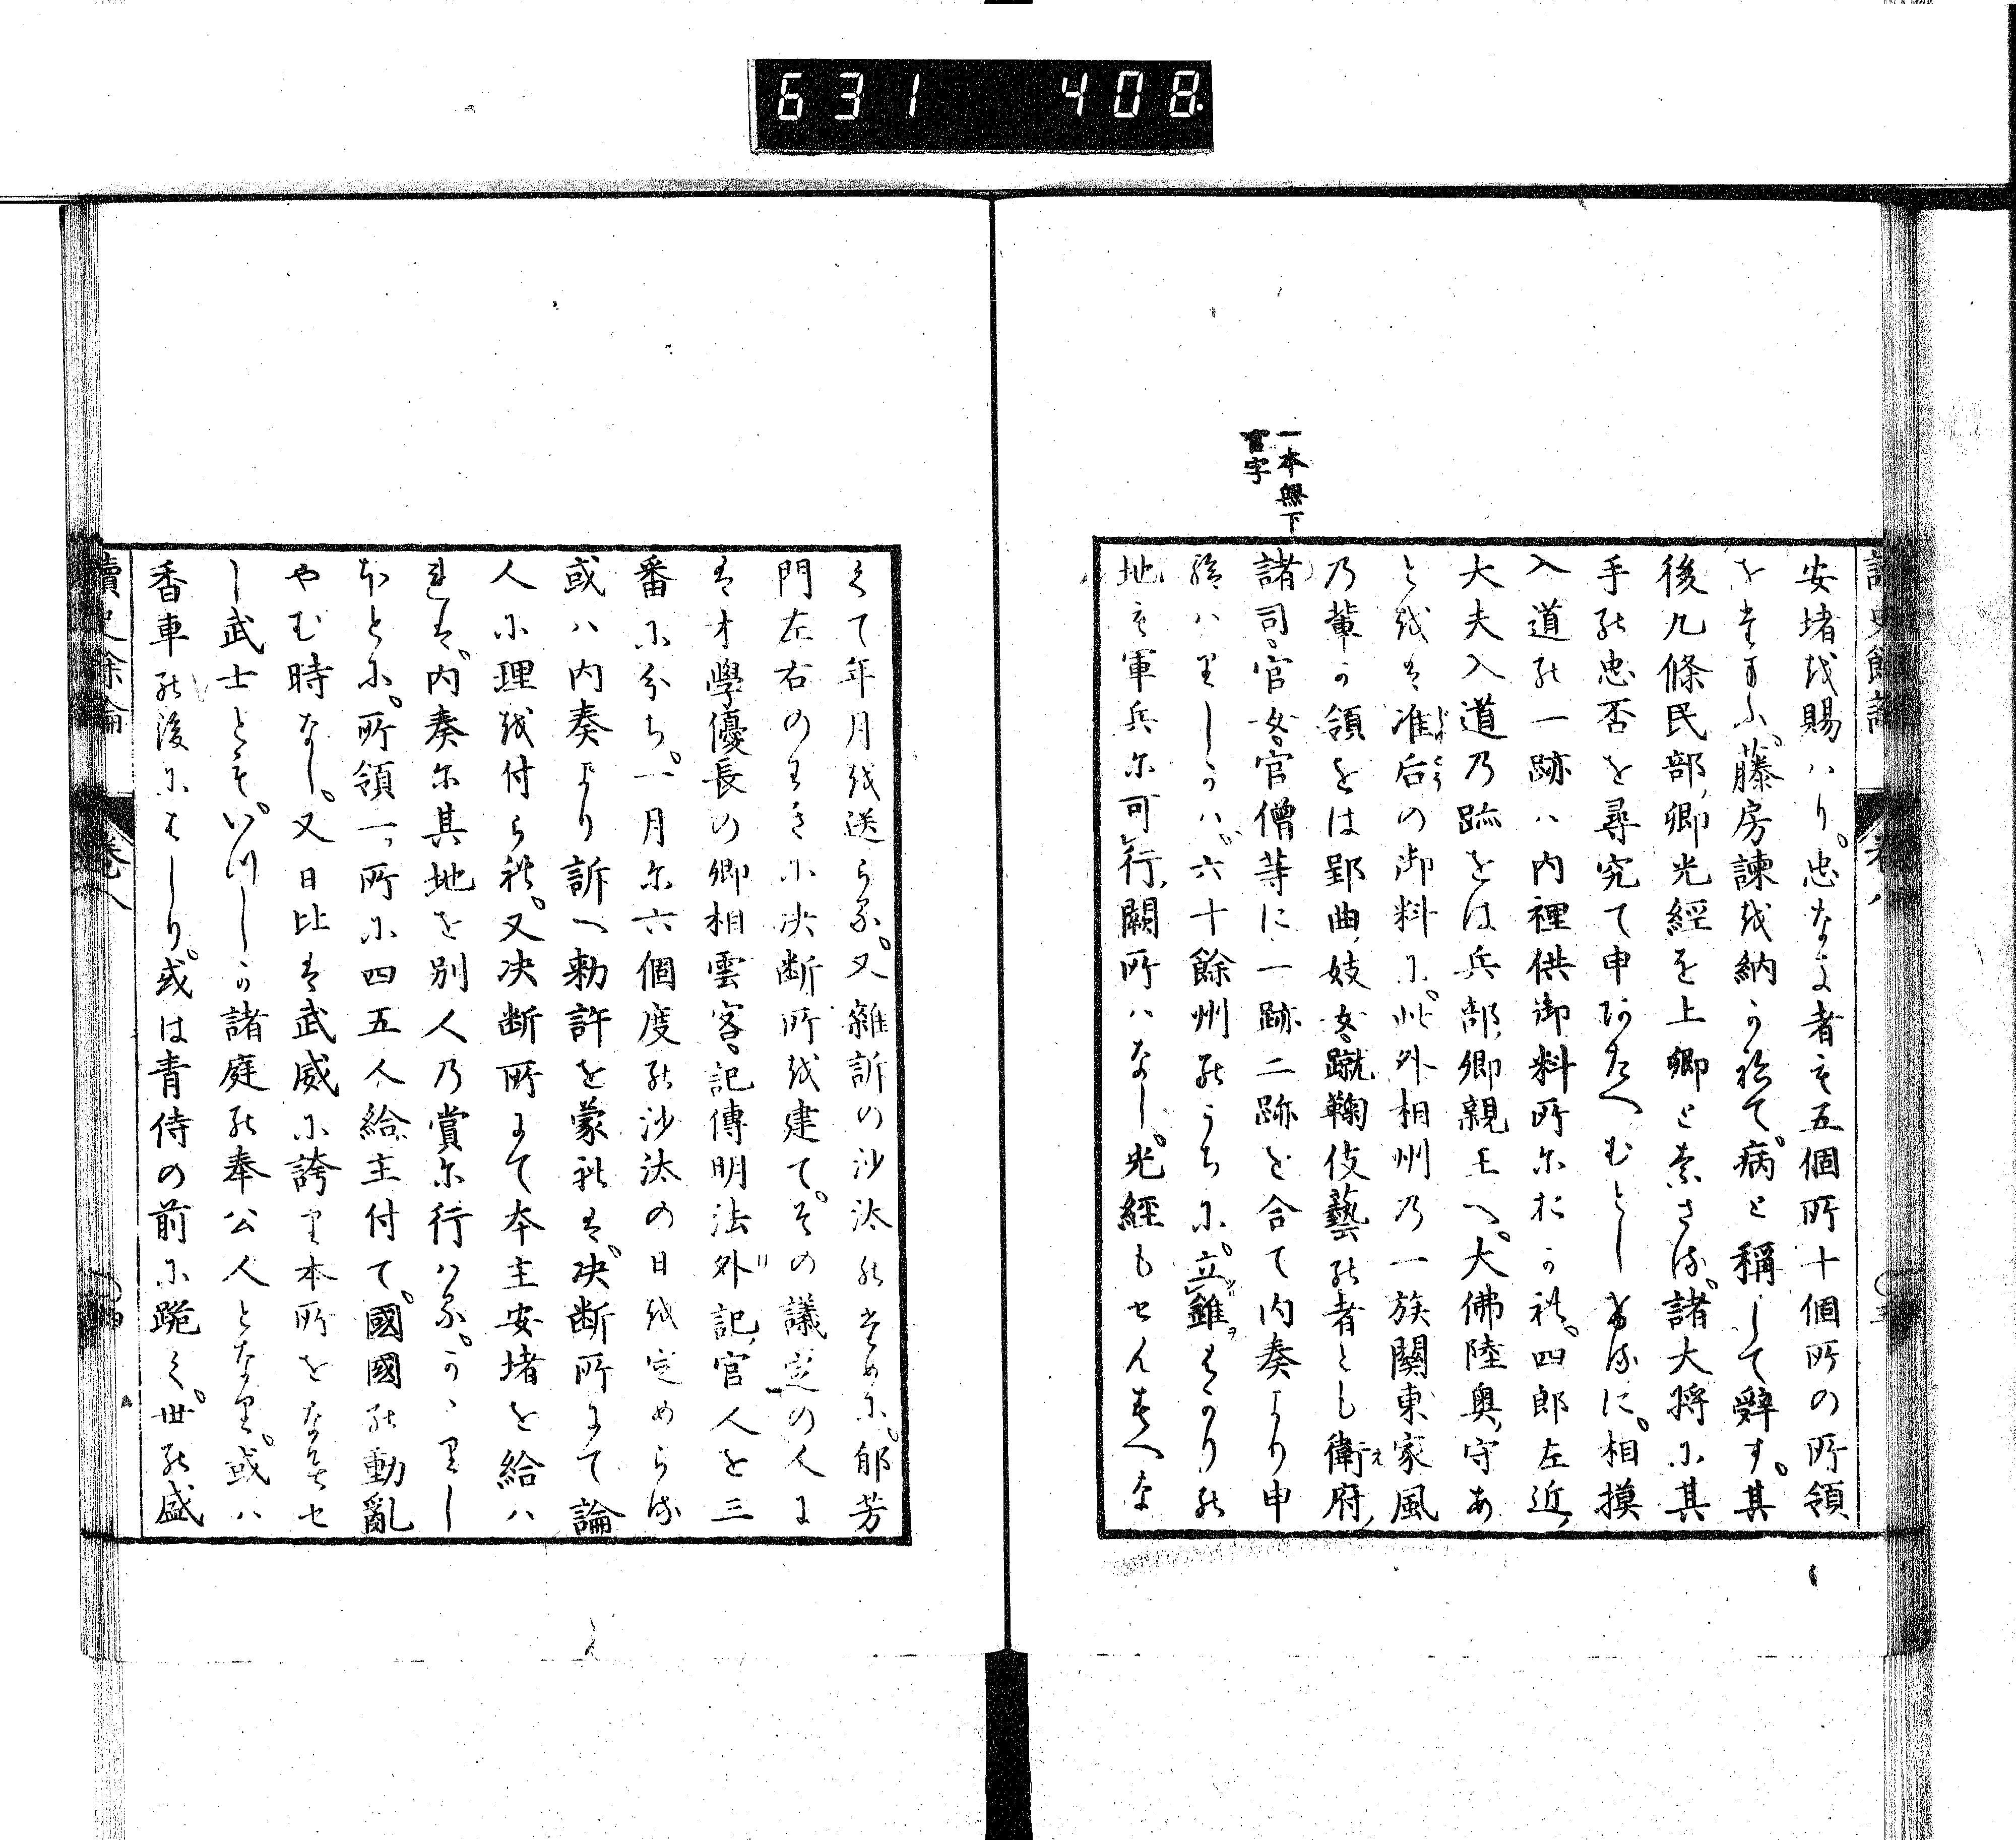 631 408
一本無下
官字
讀史餘論 巻八
安堵を賜ハり。忠なき者も五個所十個所の所領
をたまふ。藤房諫を納かねて。病と稱して辭す。其
後九條民部卿光經を上卿と定さる。諸大將に其
手の忠否を尋究て申あたへむとしける に。相摸
入道の一跡ハ内裡供御料所におかれ。四郎左近
大夫入道乃跡をは兵部卿親王へ。大佛陸奥守あ
とをは准后の御料に。此外相州乃一族關東家風
乃輩の領をは郢曲妓女蹴鞠伎藝の者とも衛府
諸司官女官僧等に一跡二跡を合て内奏より申
給ハりしかハ。六十餘州のうちに。立錐はかりの
地も軍兵に可行闕所ハなし。光經もせんすへな
くて年月を送らる。又雜訴の沙汰のために。郁芳
門左右のわきに决断所を建て。その議定の人に
は才學優長の卿相雲客記傳明法外記官人を三
番に分ち。一月に六個度の沙汰の日を定めらる
或ハ内奏より訴へ勅許を蒙れは。决断所にて論
人に理を付られ。又决断所にて本主安堵を給ハ
れは。内奏に其地を別人乃賞に行ハる。かゝりし
ほとに。所領一所に四五人給主付て。國國の動亂
やむ時なし。又日比は武威に誇り本所をなみせ
し武士とも。いつしか諸庭の奉公人となり。或ハ
香車の後にはしり。或は青侍の前に跪く。世の盛
讀史餘論 巻八